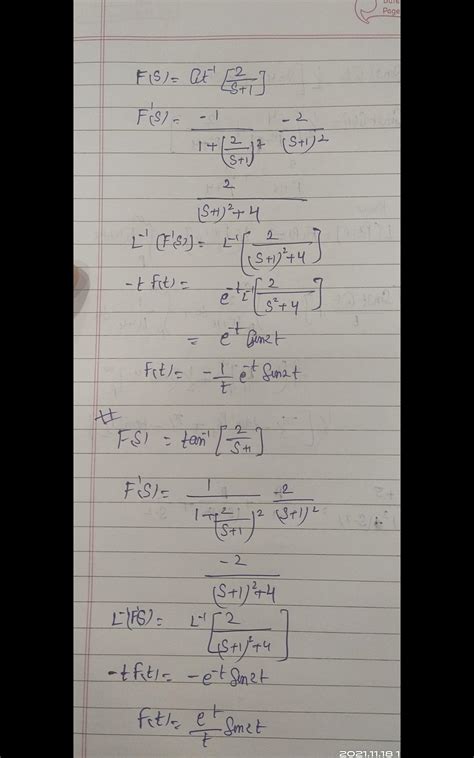 Page
F(S) = Cot⁻¹ [2/(S+1)]
F'(S) = -1/(1+(2/(S+1))²) -2/(S+1)²
2/((S+1)²+4)
L⁻¹ [F'(S)] = L⁻¹ [2/((S+1)²+4)]
-t f(t) = e^-t L⁻¹ [2/(S²+4)]
= e^-t Sin2t
f(t) = -1/t e^-t Sin2t
#
F(S) = tan⁻¹ [2/(S+1)]
F'(S) = 1/(1+(2/(S+1))²) -2/(S+1)²
-2/((S+1)²+4)
L⁻¹(F'(S)) = L⁻¹ [2/((S+1)²+4)]
-t f(t) = -e^-t Sin2t
f(t) = e^t/t Sin2t
2021.11.18 1